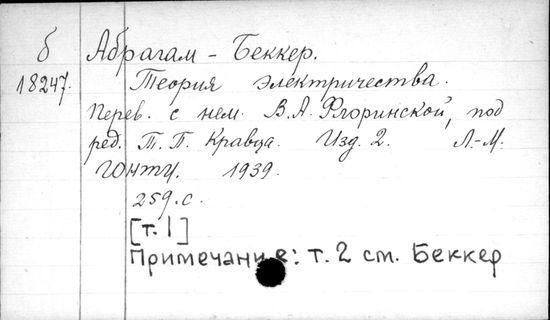 б Абрагам - Беккер.
18247. Теория электричества.
Перев. с нем. В.А. Флоринской, под
ред. Т.П. Кравца. Изд. 2. Л.-М.
ГОНТИ. 1939.
259.с.
[т.1]
Примечание: т.2 см. Беккер